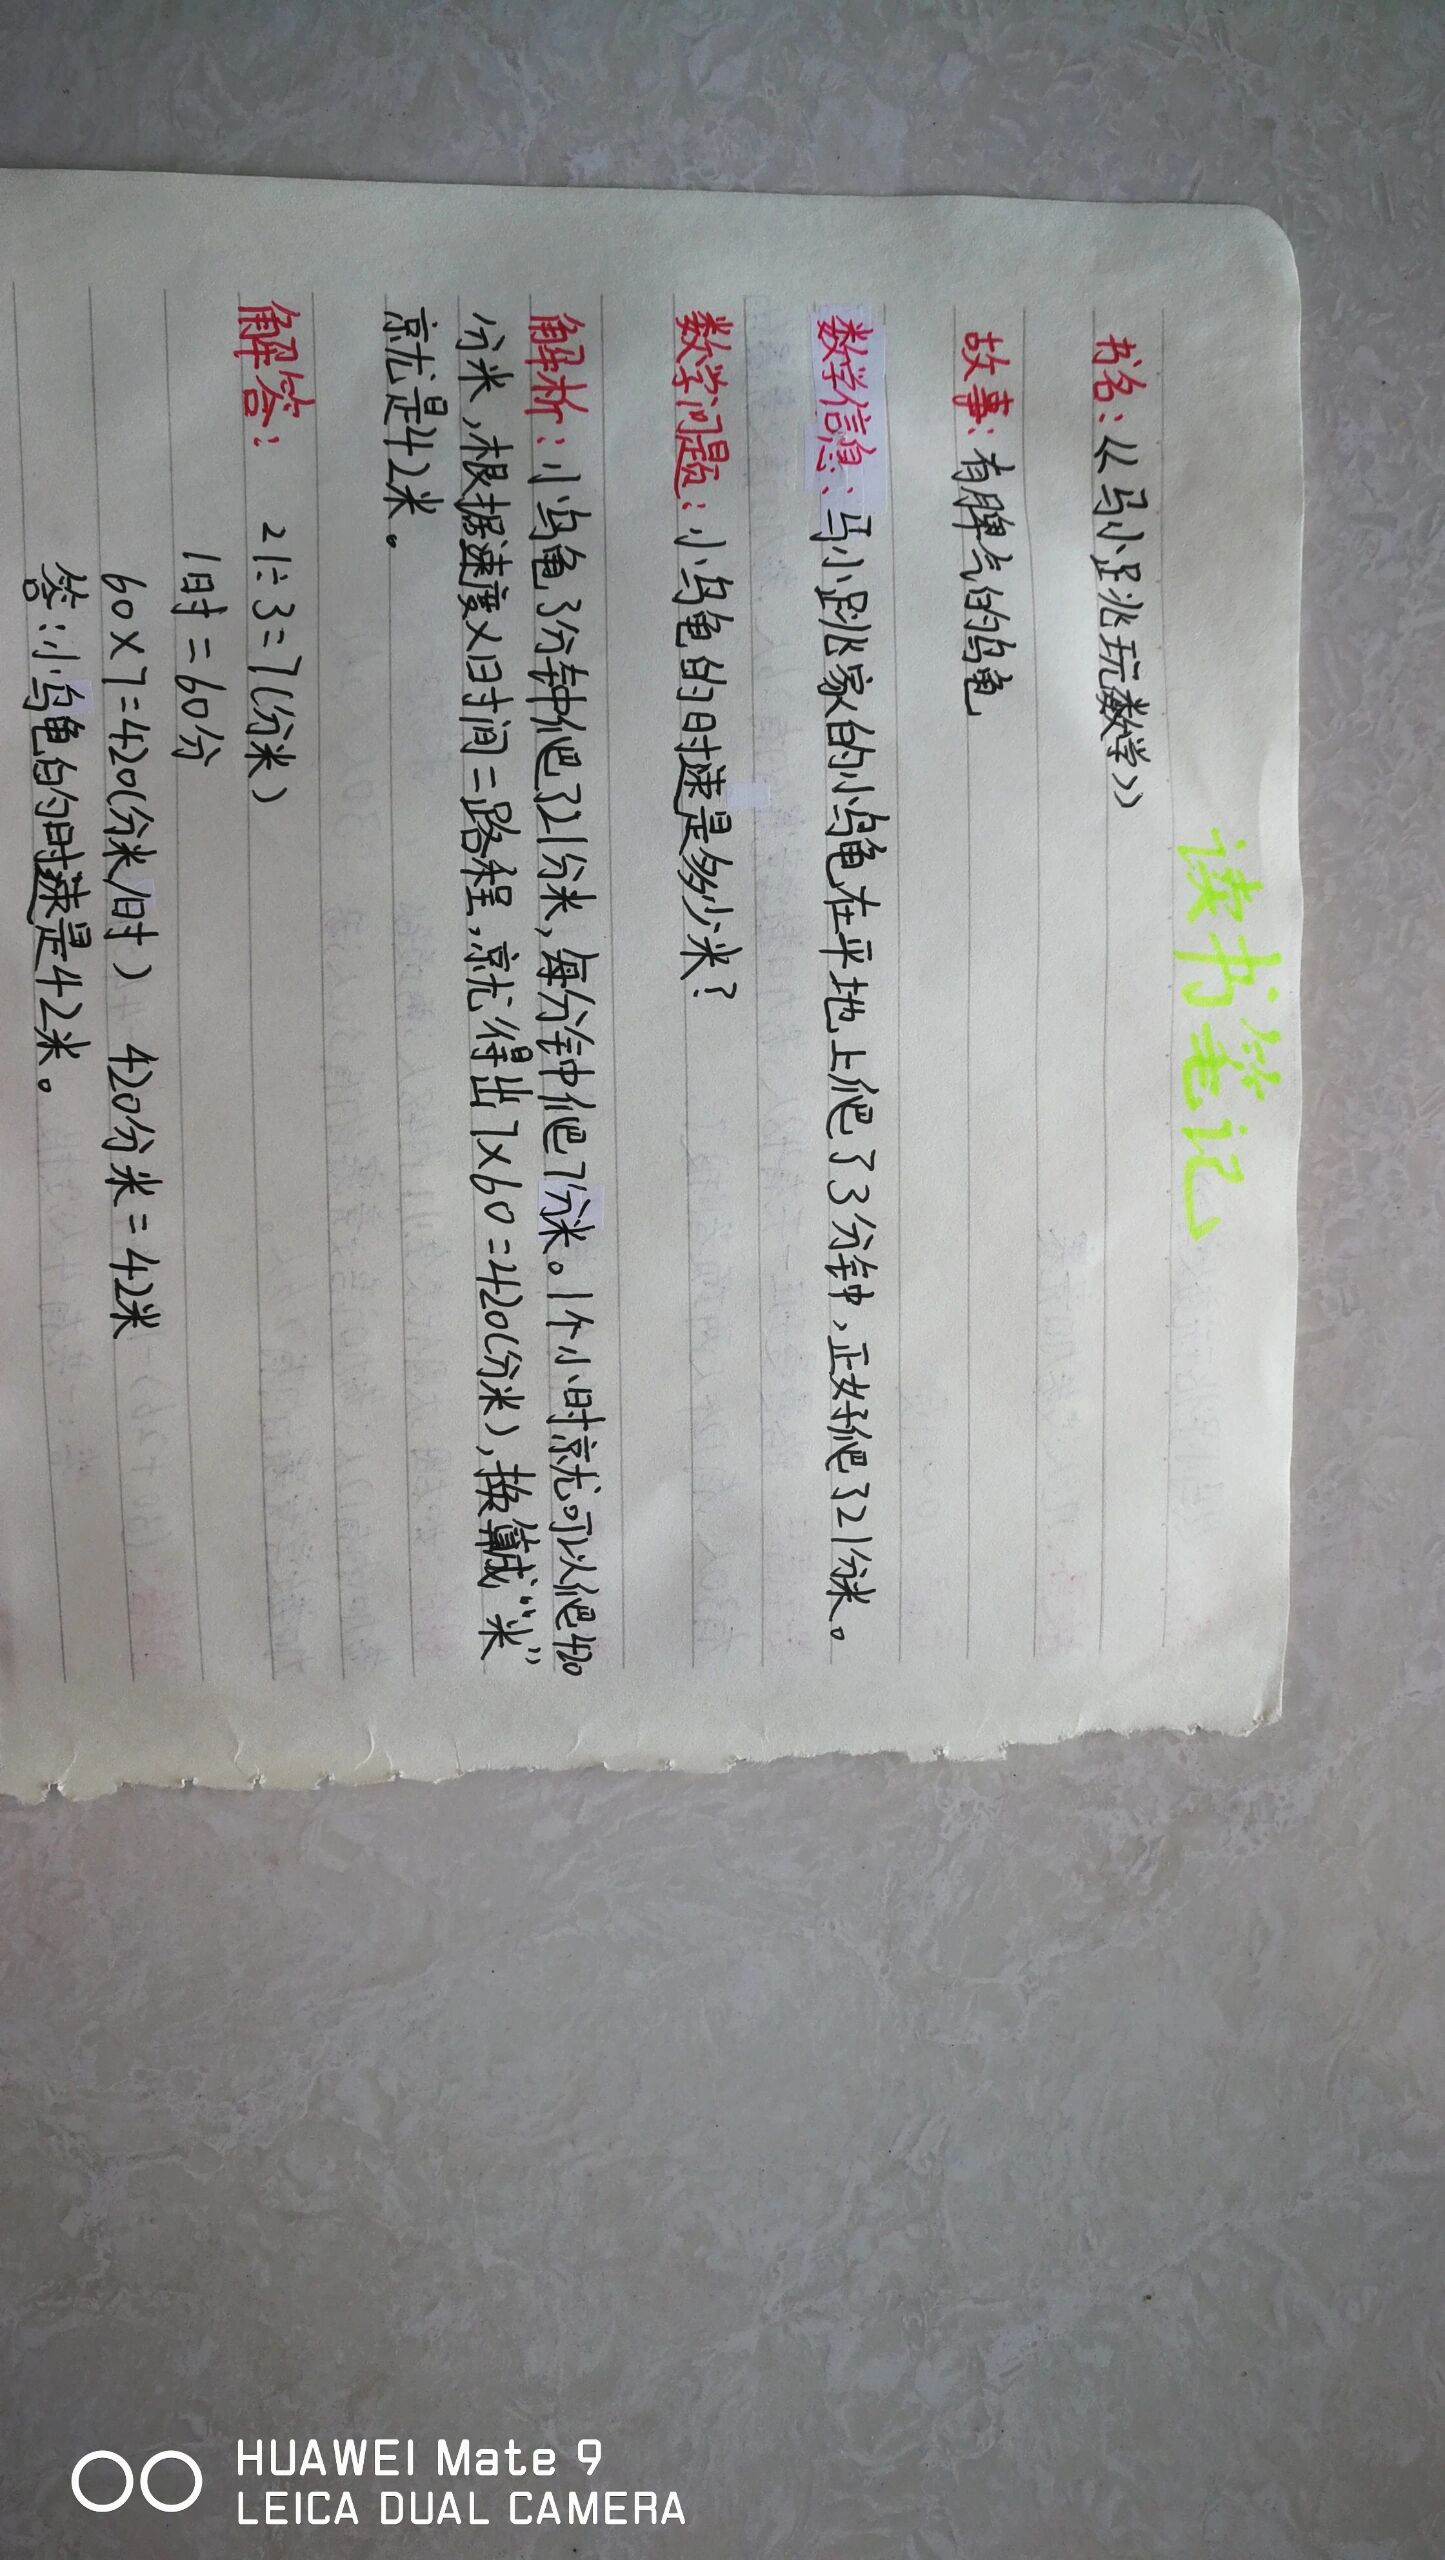 读书笔记
书名：《马小跳玩数学》
故事：有脾气的乌龟
数学信息：马小跳家的小乌龟在平地上爬了3分钟，正好爬了21分米。
数学问题：小乌龟的时速是多少米？
解析：小乌龟3分钟爬了21分米，每分钟爬7分米。1个小时就可以爬420
分米，根据速度×时间=路程，就得出7×60=420(分米)，换算成“米”
就是42米。
解答： 21÷3=7(分米)
1时=60分
60×7=420(分米/时) 420分米=42米
答：小乌龟的时速是42米。
HUAWEI Mate 9
LEICA DUAL CAMERA